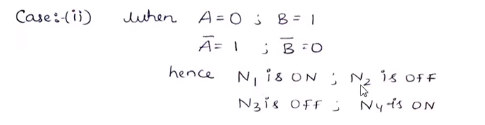 Case:-(ii) when A=0 ; B=1
A̅=1 ; B̅=0
hence N₁ is ON ; N₂ is OFF
N₃ is OFF ; N₄ is ON